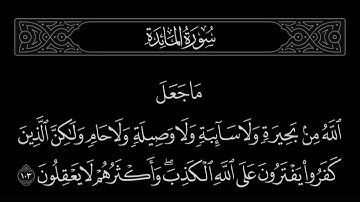 سُورَةُ المَائدَة
مَا جَعَلَ
ٱللَّهُ مِنۢ بَحِيرَةٖ وَلَا سَآئِبَةٖ وَلَا وَصِيلَةٖ وَلَا حَامٖ وَلَٰكِنَّ ٱلَّذِينَ
كَفَرُواْ يَفۡتَرُونَ عَلَى ٱللَّهِ ٱلۡكَذِبَۖ وَأَكۡثَرُهُمۡ لَا يَعۡقِلُونَ ١٠٣